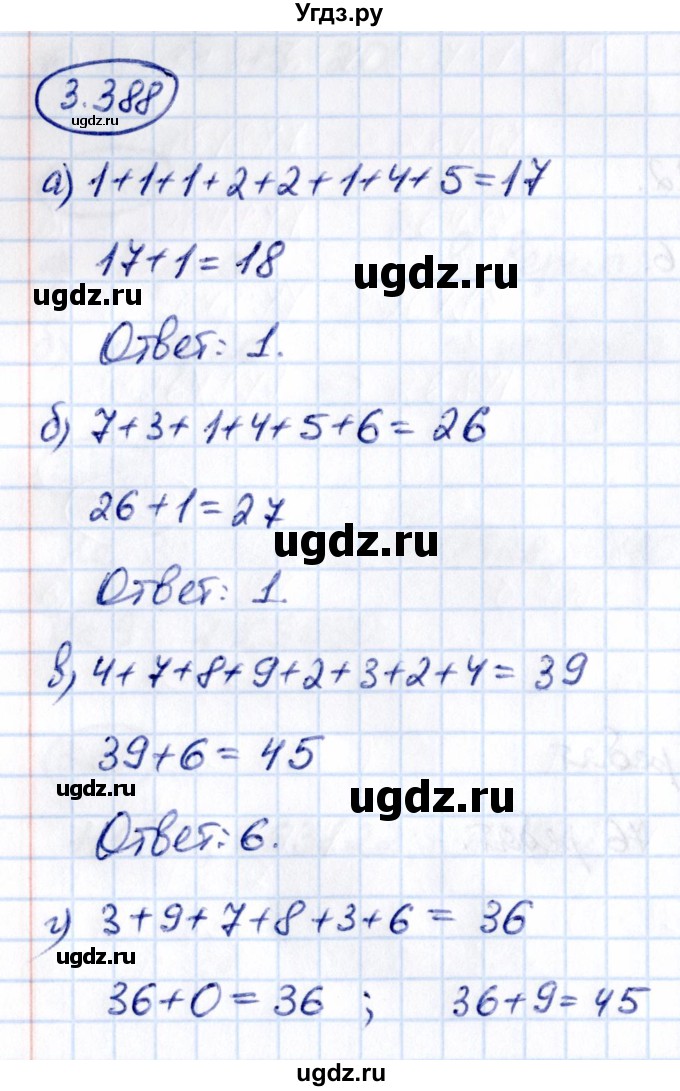 Угдз.ру
3.388
ugdz.ru
а) 1+1+1+2+2+1+4+5=17
17+1=18
ugdz.ru
ugdz.ru
Ответ: 1.
б) 7+3+1+4+5+6=26
26+1=27
ugdz.ru
Ответ: 1.
в) 4+7+8+9+2+3+2+4=39
39+6=45
ugdz.ru
ugdz.ru
Ответ: 6.
г) 3+9+7+8+3+6=36
ugdz.ru
36+0=36 ; 36+9=45
ugdz.ru